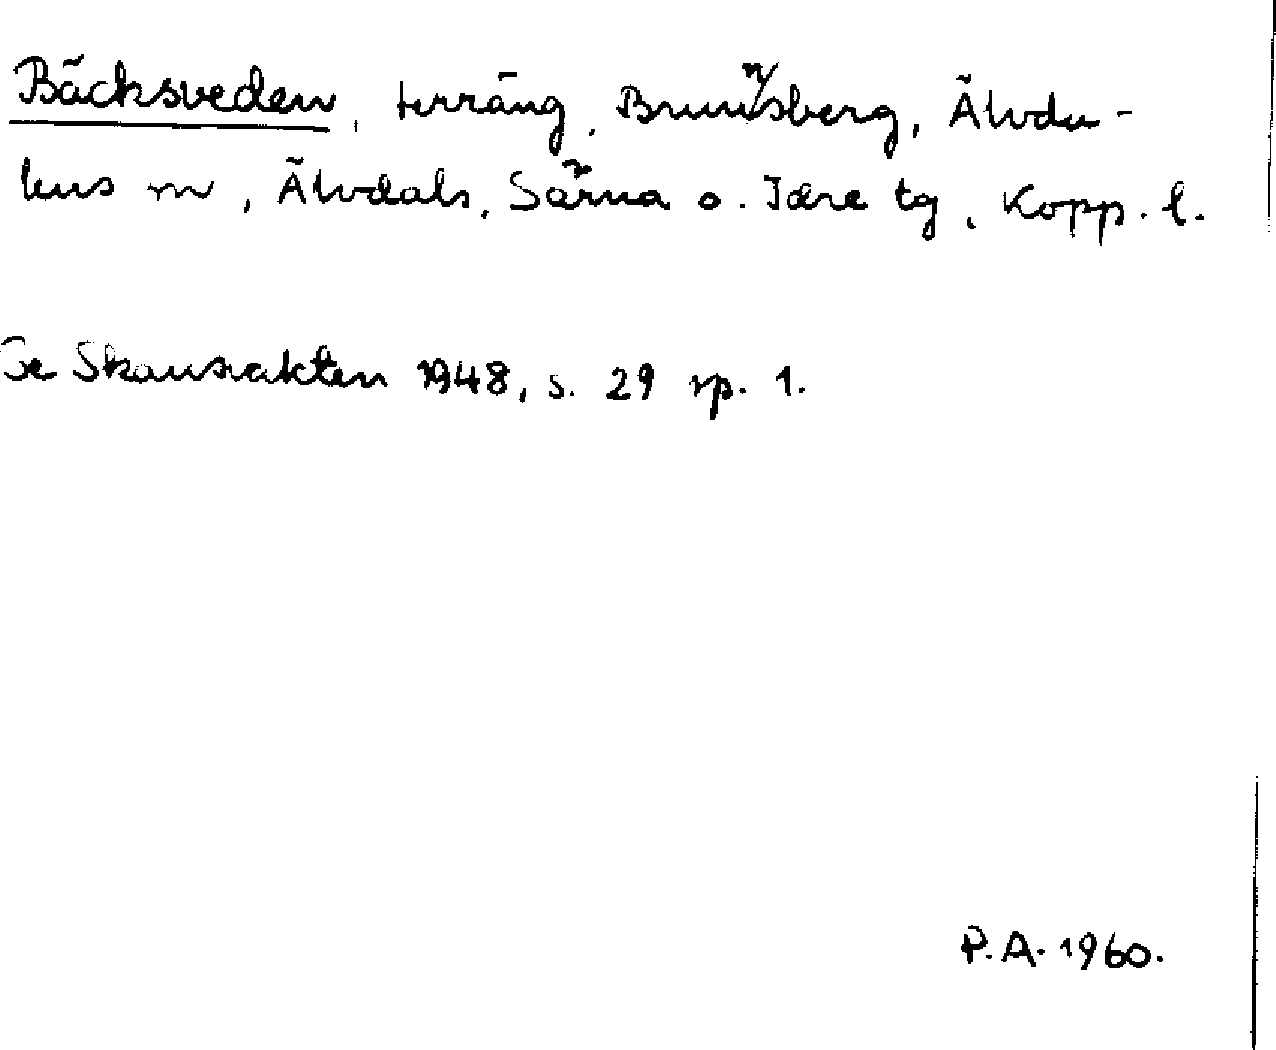 Bäcksveden, terräng, Brunnsberg, Älvda-
lens sn, Älvdals, Särna o. Idre tg, Kopp. l.
Se Skansvakten 1948, s. 29 sp. 1.
P.A. 1960.